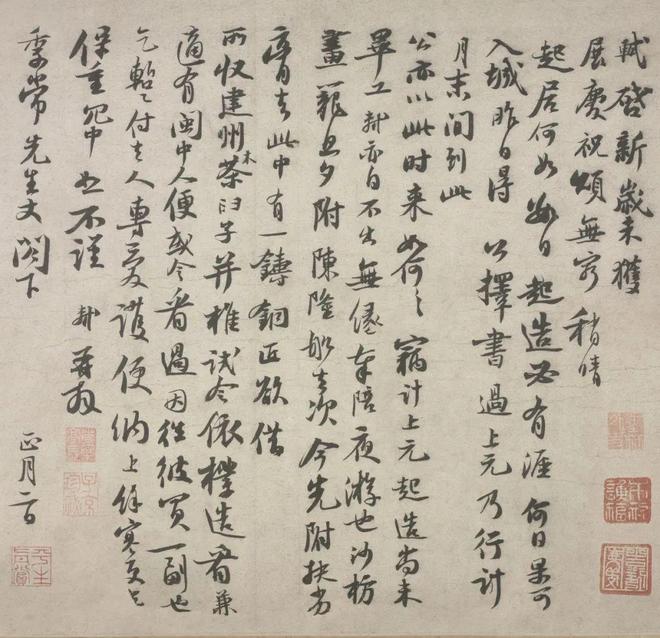 軾啓新歲未獲
展慶祝頌無窮稍晴
起居何如數日起造必有涯何日果可
入城昨日得公擇書過上元乃行計
月末間到此
公亦以此时来如何々竊計上元起造尚未
畢工軾亦自不出無緣奉陪夜游也沙枋
畫籠旦夕附陳隆船去次今先附扶劣
膏去此中有一鑄銅匠欲借
所収建州木茶臼子并椎試令依樣造看兼
適有閩中人便或令看過因往彼買一副也
乞暫付去人專愛護便納上餘寒更乞
保重冗中恕不謹軾再拜
季常先生丈閣下
正月二日